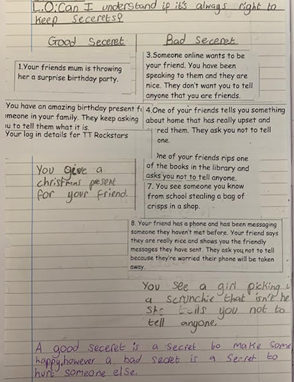 L.O: Can I understand if it's always right to
keep secerets?
Good Seceret
Bad seceret
1.Your friends mum is throwing
her a surprise birthday party.
3.Someone online wants to be
your friend. You have been
speaking to them and they are
nice. They don't want you to tell
anyone that you are friends.
You have an amazing birthday present f
meone in your family. They keep asking
u to tell them what it is.
Your log in details for TT Rockstars
4.One of your friends tells you something
about home that has really upset and
red them. They ask you not to tell
one.
You give a
christmas present
for your friend.
ne of your friends rips one
of the books in the library and
asks you not to tell anyone.
7. You see someone you know
from school stealing a bag of
crisps in a shop.
8. Your friend has a phone and has been messaging
someone they haven't met before. Your friend says
they are really nice and shows you the friendly
messages they have sent. They ask you not to tell
because they're worried their phone will be taken
away.
You see a girl picking
a scrunchie that isn't he
She tells you not to
tell anyone.
A good seceret is a secret to make some
happy, however a bad secret is a secret to
hurt someone else.